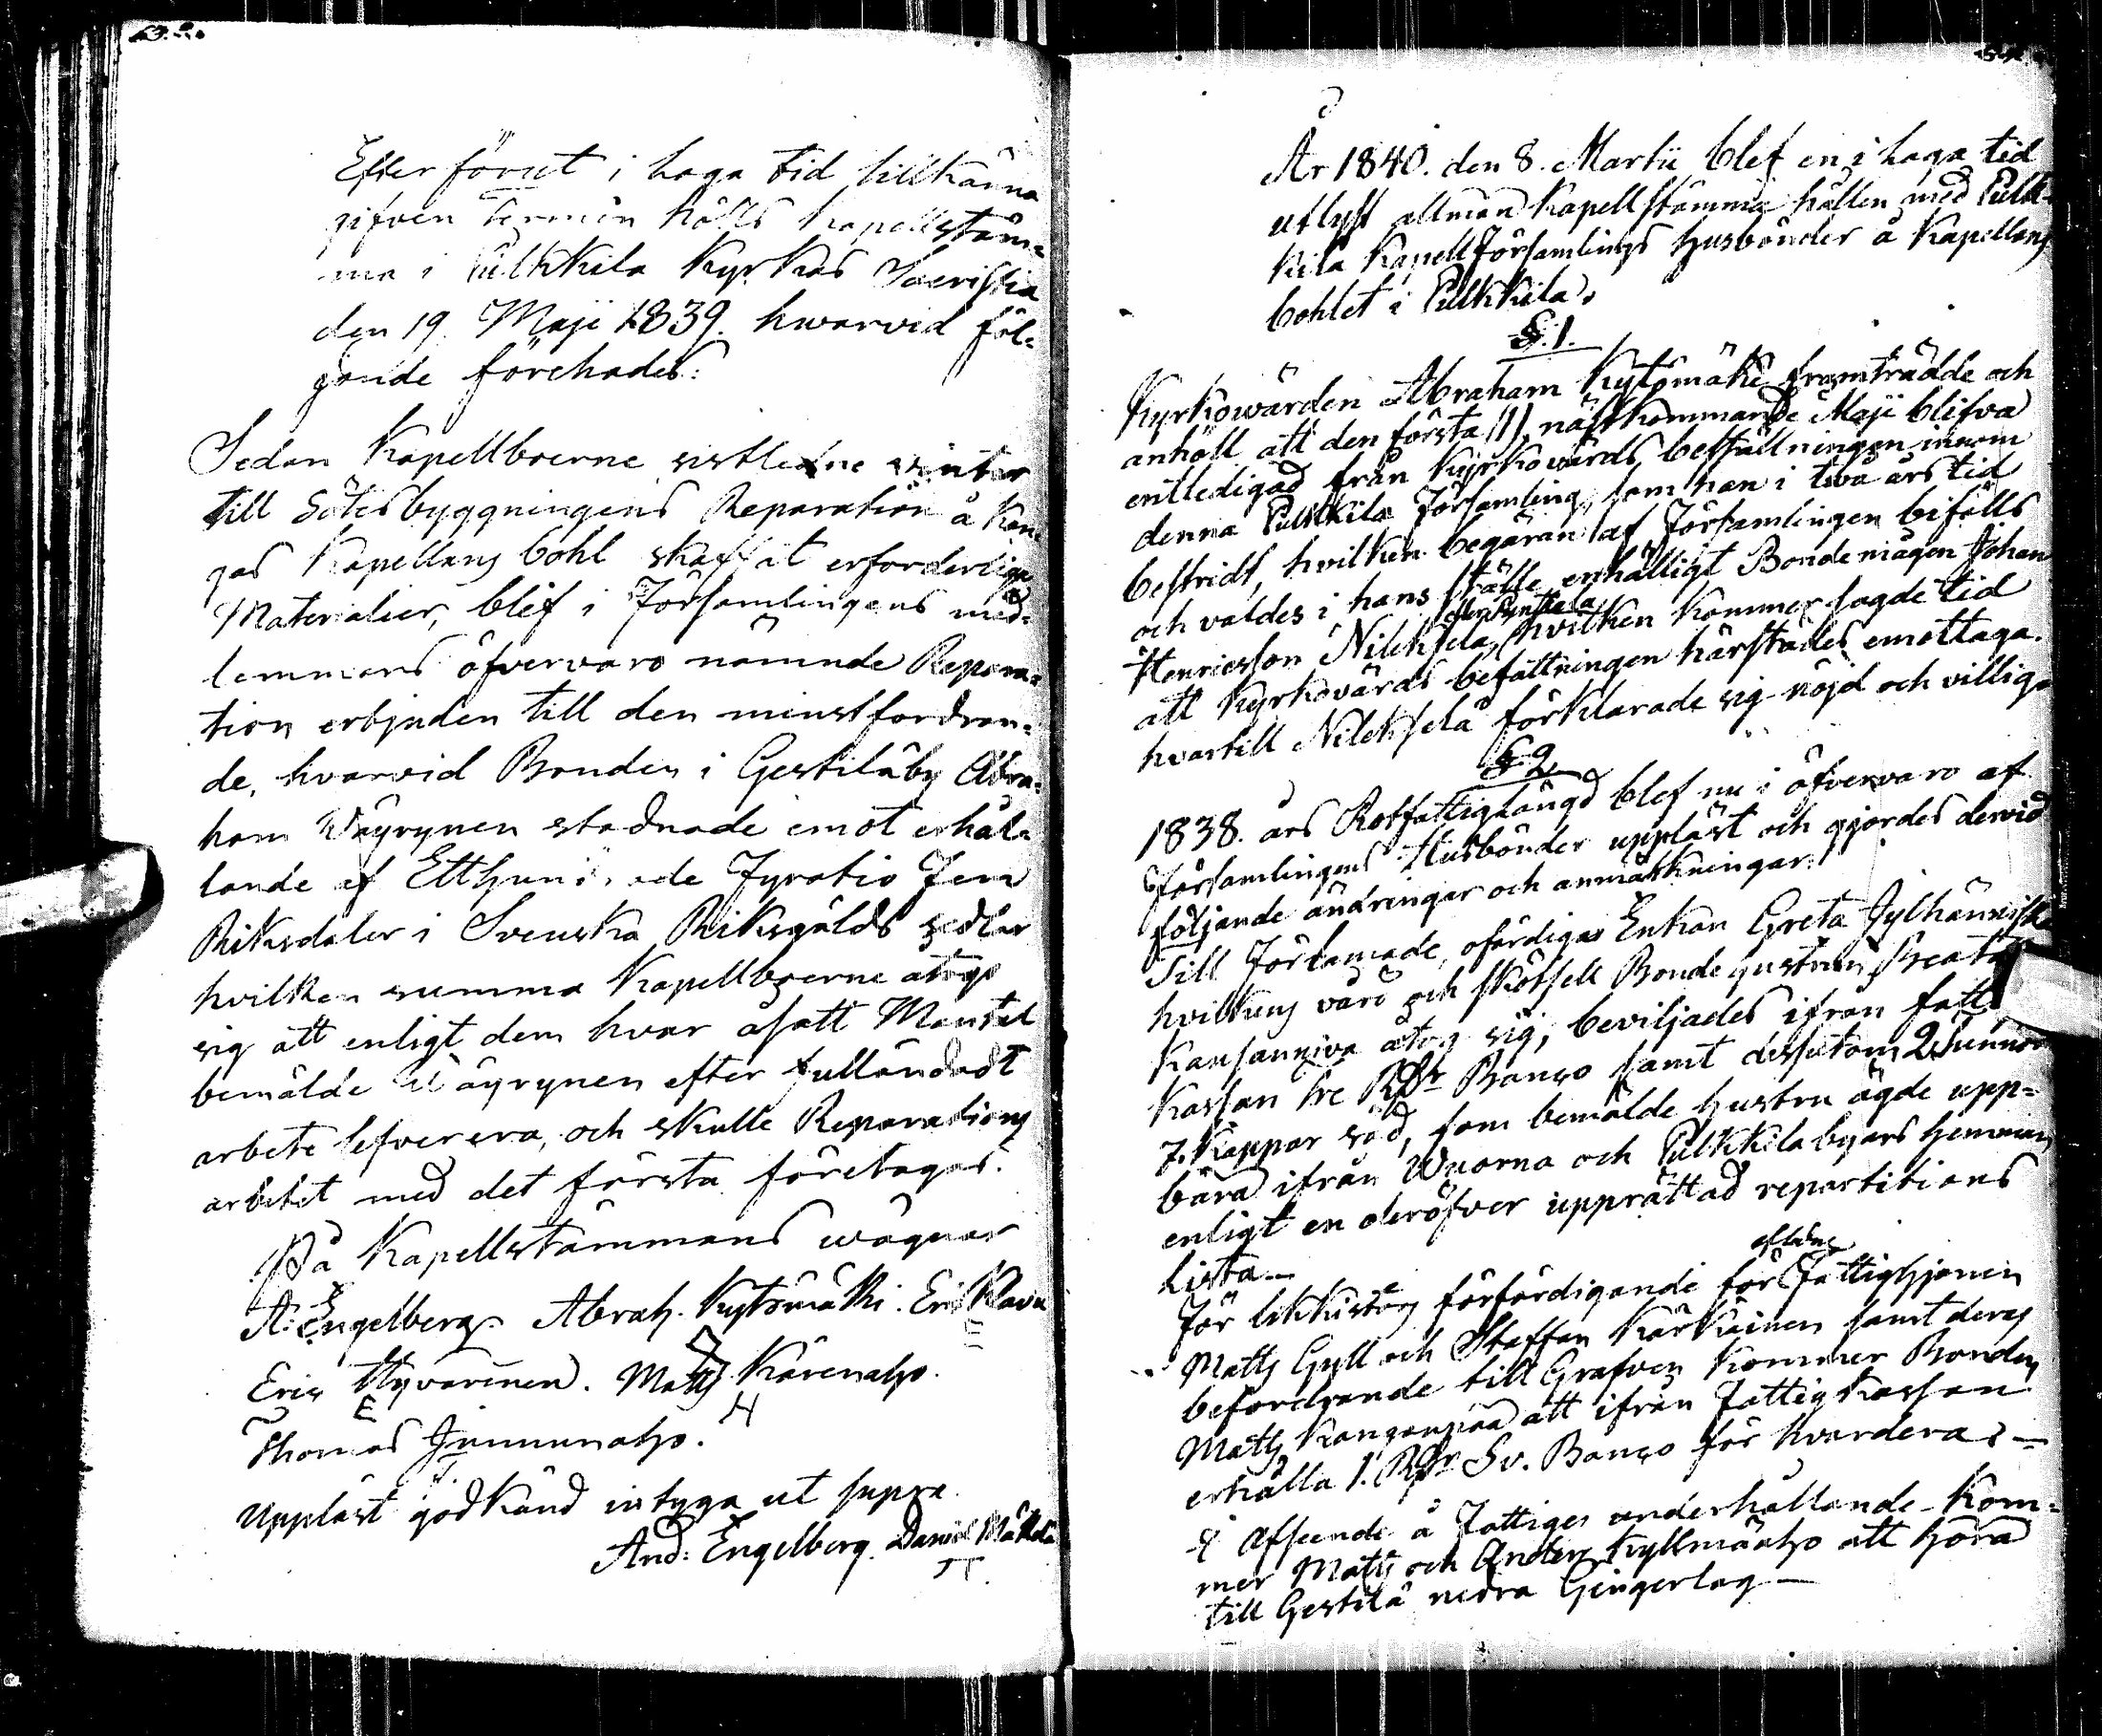 Efter förut i laga tid tillkänna
gifven termin hölls Kapellstäm=
ma i Pulkkila Kyrkas Sacristia
den 19. Maji 1839. hwarvid föl=
gande förehades:
Sedan Kapellboerne sistledne winter
till Sätesbyggningens Reparation å Kan=
gas Kapellans bohl skaffat erforderliga
Materialier, blef i Församlingens med=
lemmars öfvervaro nämnde Repara=
tion erbjuden till den minstfordran=
de, hvarvid Bonden i Gestiläby Abra=
ham Wäyrynen stadnade emot erhål=
lande af Etthundrade Fyratio Fem
Riksdaler i Svenska Riksgälds sedlar
hvilken summa Kapellboerne åtogo
sig att enligt dem hvar åsatt Mantal
bemälde Wäyrynen efter fulländadt
arbete lefverera, och skulle Reparations
arbetet med det första företagas.
På Kapellstämmans wägnar
A: Engelberg. Abrah. Kytömäki. Eric Klavu
Eric Hyvärinen. Matts Kärenaho.
E H
Thomas Junnunaho.
T
Uppläst godkänd intyga ut supra
And: Engelberg. Daniel Mäkelä
År 1840. den 8. Martii blef en i laga tid
utlyst allmän Kapellstämma hållen med Pulk=
kila Kapell Församlings Husbönder å Kapellans
bohlet i Pulkkila.
§.1.
Kyrkowärden Abraham Kytömäki framträdde och
anhöll att den första (1) nästkommande Maji blifva
entledigad från Kyrkowärds beställningen inom
denna Pulkkila Församling, som han i twå års tid
bestridt, hvilken begäran af Församlingen bifölls
och valdes i hans ställe enhälligt Bondemågen Johan
Henricsson Nileksela, hvilken kommer sagde tid
att Kyrkovärds befattningen härstädes emottaga.
hvartill Nileksela förklarade sig nöjd och villig.
§2.
1838. års Rotfattiglängd blef nu i öfvervaro af
Församlingens Husbönder uppläst och gjordes dervid
följande ändringar och anmärkningar:
Till Förlamade, ofärdiga Enkan Greta Jylhännisk
hvilkens vård och skötsell Bondehustrun Beata
Kansanniva åtog sig, beviljades ifrån fatti
Kassan tre Rdr Banco samt dessutom 2 Tunnor
7. Kappar säd, som bemälde hustru ägde upp=
bära ifrån Wuorna och Pulkkila byars hemman
enligt en deröfver upprättad repartitions
lista.—
aflidne
För likkistors förfärdigande för Fattighjonen
Matts Gyll och Staffan Kärkäinen samt deras
befordrande till Grafven kommer Bonden
Matts Kanganpää att ifrån Fattig Kassan
erhålla 1. Rdr Sv. Banco för hvardera.—
I afseende å Fattiges underhållande kom=
mer Matts och Anders Kyllmäaho att höra
till Gestilä nedra Gingerlag —